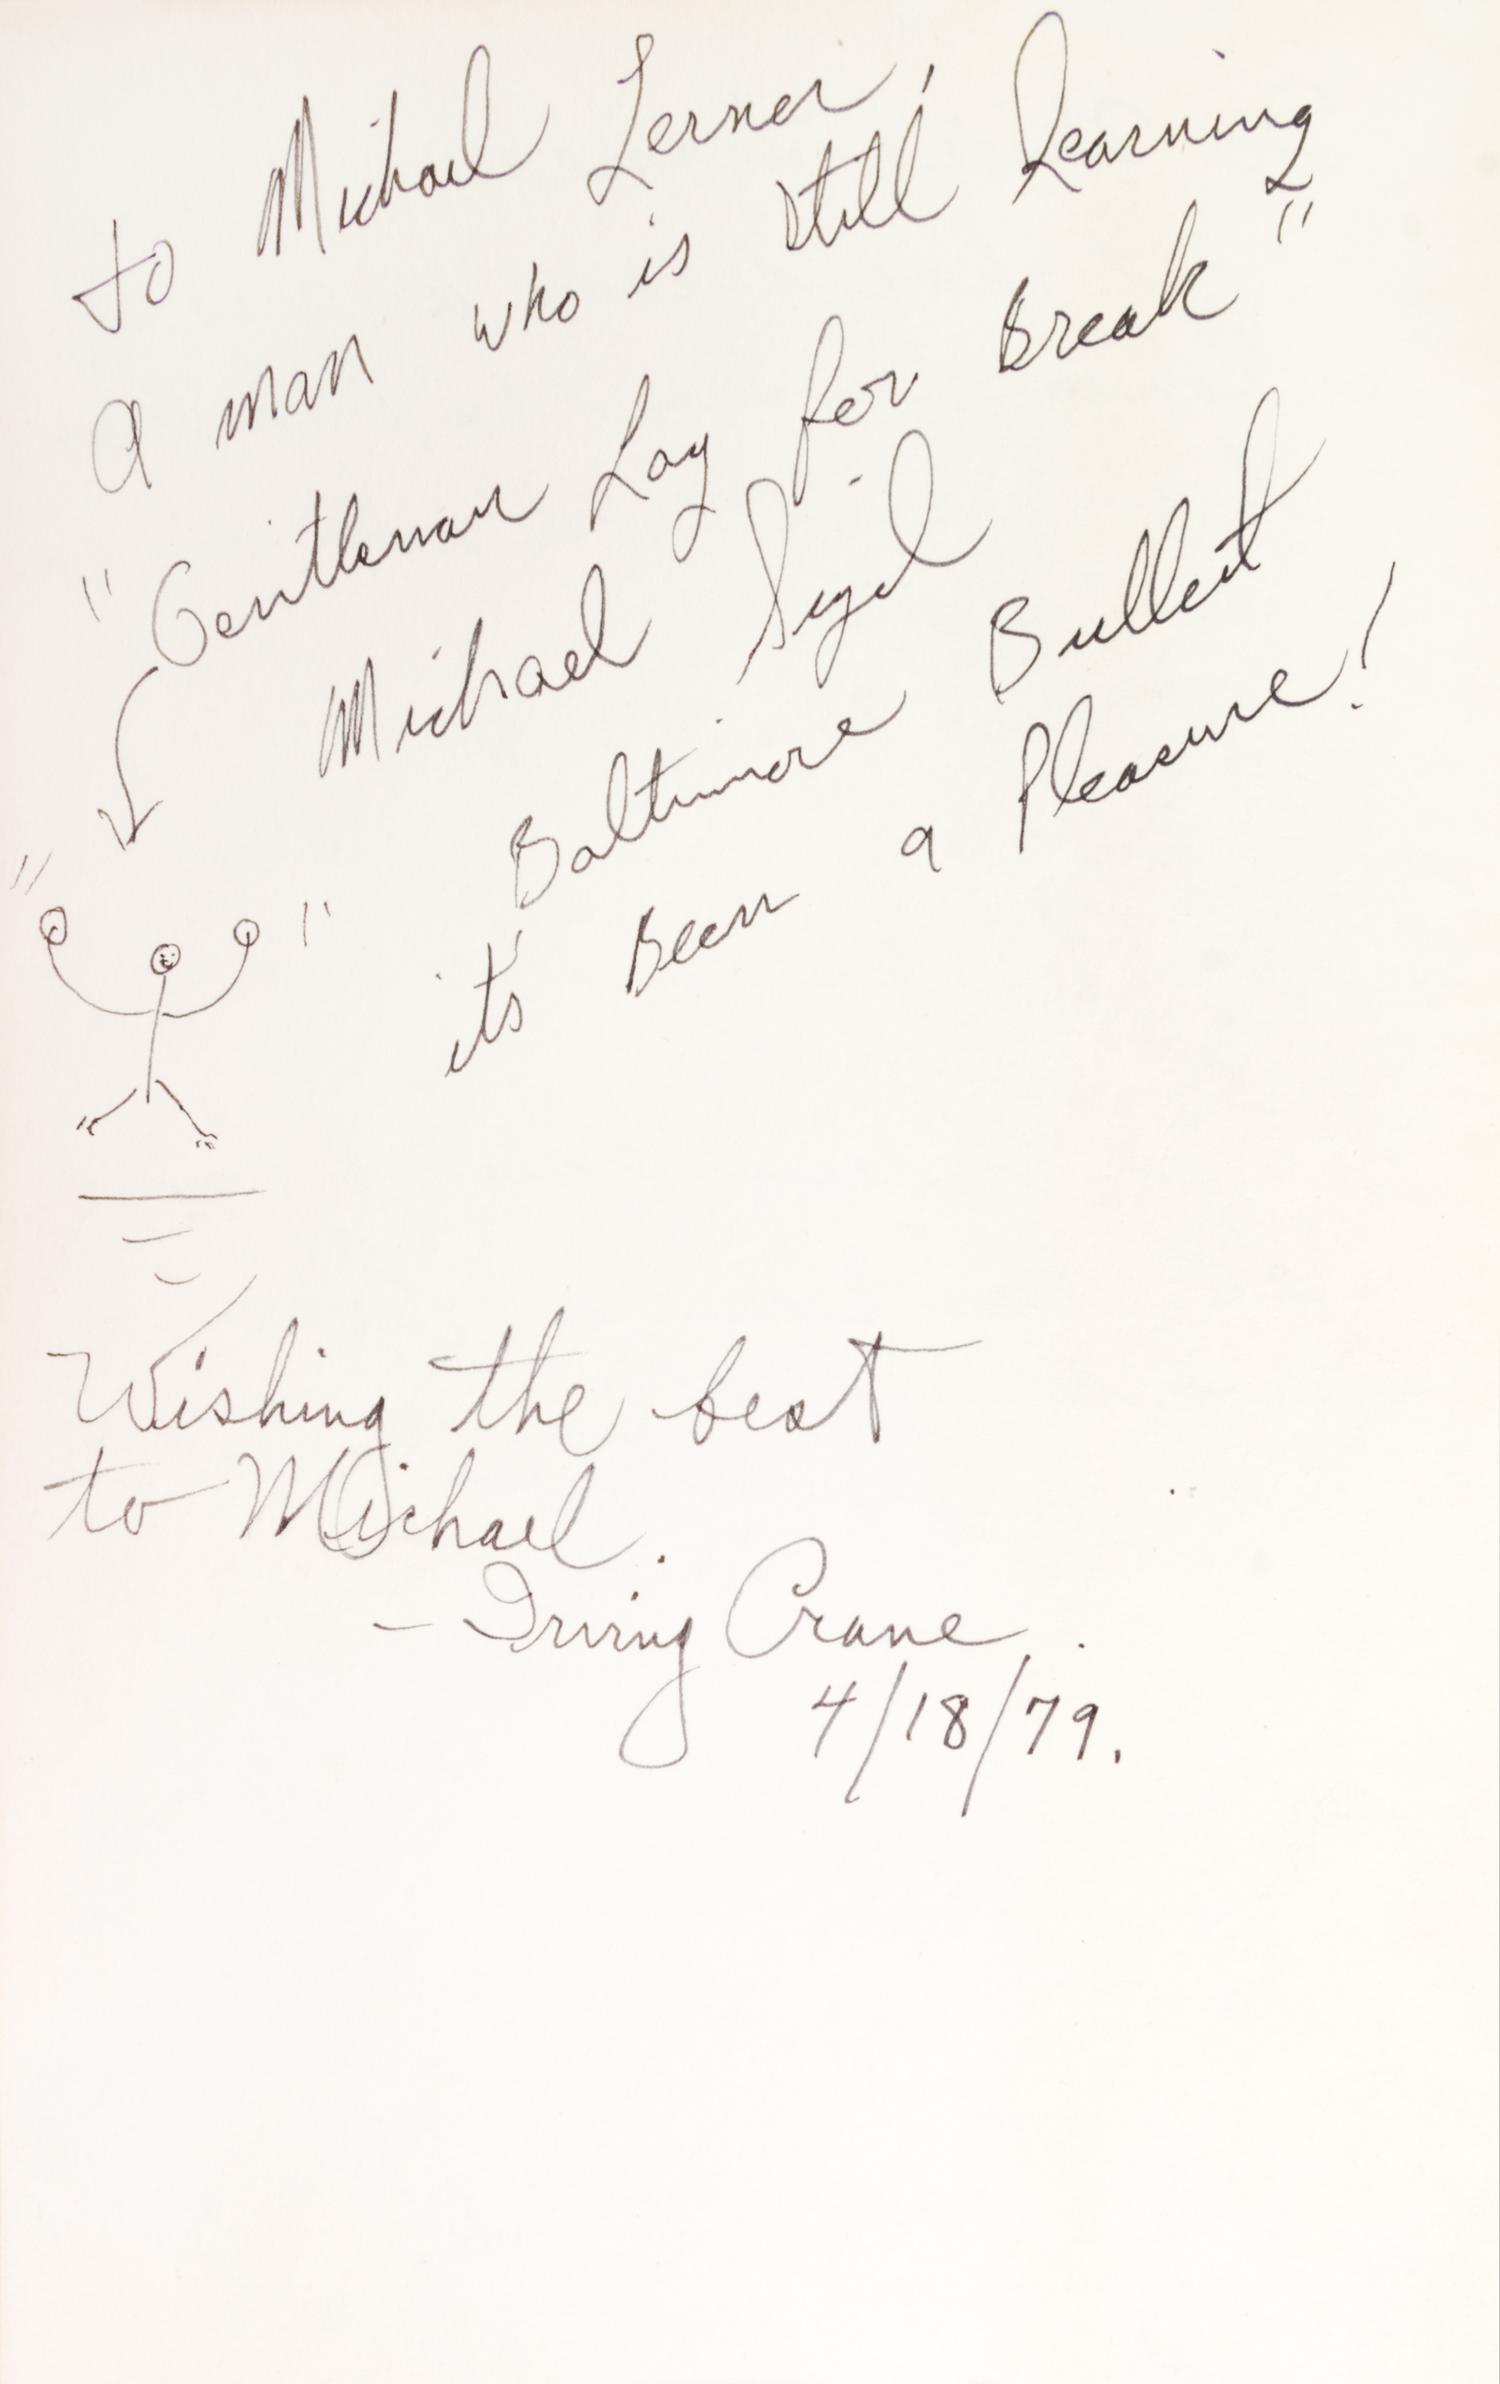 to Michael Lerner,
a man who is still learning
"Gentleman Lay for Break"
Michael Sigel
Baltimore Bullet
it's Been a Pleasure!
Wishing the best
to Michael.
- Irving Crane.
4/18/79.